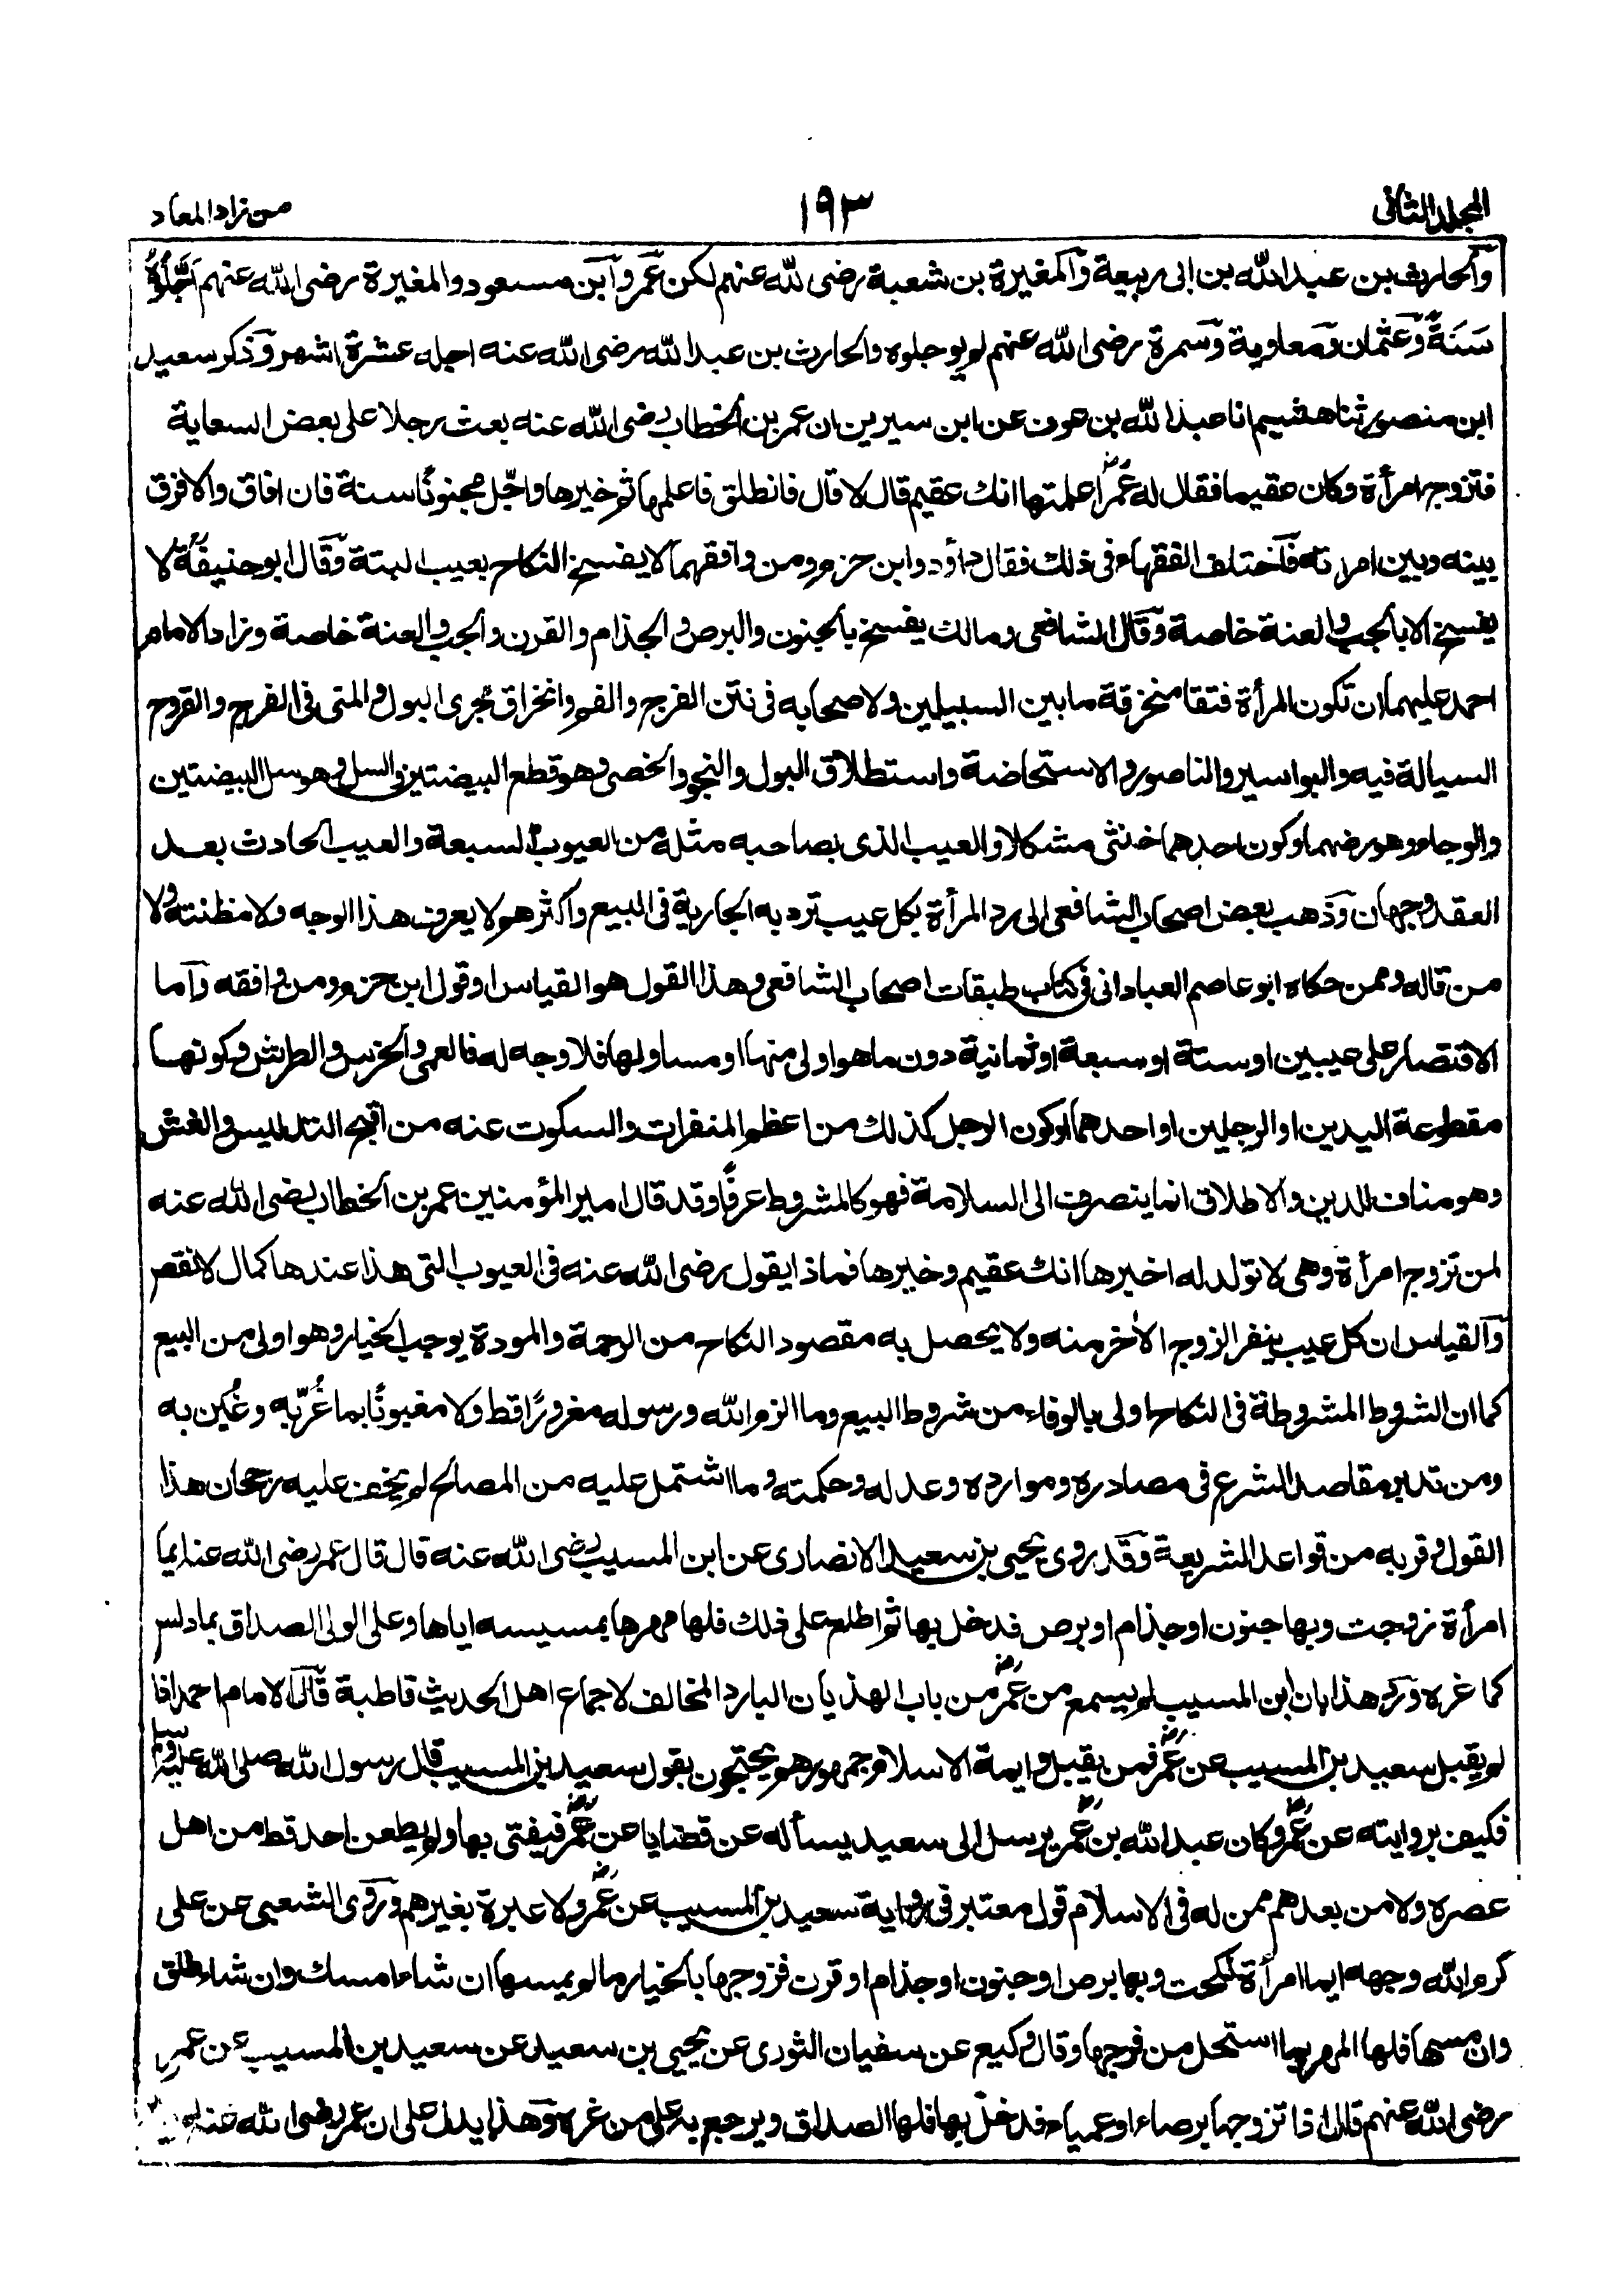 المجلد الثانى
١٩٣
من زاد المعاد
والحارث بن عبد الله بن ابى ربيعة والمغيرة بن شعبة رضى الله عنهم لكن عمر وابن مسعود والمغيرة رضى الله عنهم اجلوه
سنة وعثمان ومعاوية وسمرة رضى الله عنهم لم يوجلوه والحارث بن عبد الله رضى الله عنه اجله عشرة اشهر وذكر سعيد
ابن منصور ثنا هشيم انا عبد الله بن عوف عن ابن سيرين ان عمر بن الخطاب رضى الله عنه بعث رجلا على بعض السعاية
فتزوج امرأة وكان عقيما فقال له عمر اعلمتها انك عقيم قال لا قال فانطلق فاعلمها ثم خيرها واجّل مجنونًا سنة فان افاق والا فرق
بينه وبين امرأته فاختلف الفقهاء فى ذلك فقال داؤد وابن حزم ومن وافقهما لا يفسخ النكاح بعيب البتة وقال ابو حنيفة لا
يفسخ الا بالجب والعنة خاصة وقال الشافعى ومالك يفسخ بالجنون والبرص والجذام والقرن والجب والعنة خاصة وزاد الامام
احمد عليهما ان تكون المرأة فتقا منخرقة ما بين السبيلين ولاصحابه فى نتن الفرج والفم وانخراق مجرى البول والمنى فى الفرج والقروح
السيالة فيه والبواسير والناصور والاستحاضة واستطلاق البول والنجو والخصى وهو قطع البيضتين والسل وهو سل البيضتين
والوجاء وهو رضهما وكون احدهما خنثى مشكلا والعيب الذى بصاحبه مثله من العيوب السبعة والعيب الحادث بعد
العقد وجهان وذهب بعض اصحاب الشافعى الى رد المرأة بكل عيب ترد به الجارية فى البيع واكثرهم لا يعرف هذا الوجه ولا مظنته ولا
من قاله وممن حكاه ابو عاصم العبادانى فى كتاب طبقات اصحاب الشافعى وهذا القول هو القياس او قول ابن حزم ومن وافقه واما
الاقتصار على عيبين او ستة او سبعة او ثمانية دون ما هو اولى منها او مساو لها فلا وجه له فالعمى والخرس والطرش وكونها
مقطوعة اليدين او الرجلين او احدهما او كون الرجل كذلك من اعظم المنفرات والسكوت عنه من اقبح التدليس والغش
وهو مناف للدين والاطلاق انما ينصرف الى السلامة فهو كالمشروط عرفًا وقد قال امير المؤمنين عمر بن الخطاب رضى الله عنه
لمن تزوج امرأة وهى لا تولد له اخبرها انك عقيم وخيرها فماذا يقول رضى الله عنه فى العيوب التى هذا عندها كمال لا نقص
والقياس ان كل عيب ينفر الزوج الاٰخر منه ولا يحصل به مقصود النكاح من الرحمة والمودة يوجب الخيار وهو اولى من البيع
كما ان الشروط المشروطة فى النكاح اولى بالوفاء من شروط البيع وما الزم الله ورسوله مغرورًا قط ولا مغبونًا بما غُرّ به وغُبن به
ومن تدبر مقاصد الشرع فى مصادره وموارده وعدله وحكمته وما اشتمل عليه من المصالح لم يخف عليه رجحان هذا
القول وقربه من قواعد الشريعة وقد روى يحيى بن سعيد الانصارى عن ابن المسيب رضى الله عنه قال قال عمر رضى الله عنه ايما
امرأة زوجت وبها جنون او جذام او برص فدخل بها ثم اطلع على ذلك فلها مهرها بمسيسه اياها وعلى الولى الصداق بما دلس
كما غره ورد هذا بان ابن المسيب لم يسمع من عمر من باب الهذيان البارد المخالف لاجماع اهل الحديث قاطبة قال الامام احمد اذا
لم يقبل سعيد بن المسيب عن عمر فمن يقبل وايمة الاسلام وجمهورهم يحتجون بقول سعيد بن المسيب قال رسول الله صلى الله عليه وسلم
فكيف بروايته عن عمر وكان عبد الله بن عمر يرسل الى سعيد يسأله عن قضايا عن عمر فيفتى بها ولم يطعن احد قط من اهل
عصره ولا من بعدهم ممن له فى الاسلام قول معتبر فى رواية سعيد بن المسيب عن عمر ولا عبرة بغيرهم وروى الشعبى عن على
كرم الله وجهه ايما امرأة نكحت وبها برص او جنون او جذام او قرن فزوجها بالخيار ما لم يمسها ان شاء امسك وان شاء طلق
وان مسها فلها المهر بما استحل من فرجها وقال وكيع عن سفيان الثورى عن يحيى بن سعيد عن سعيد بن المسيب عن عمر
رضى الله عنهم قال اذا تزوجها برصاء او عمياء فدخل بها فلها الصداق ويرجع به على من غره وهذا يدل على ان عمر رضى الله عنه